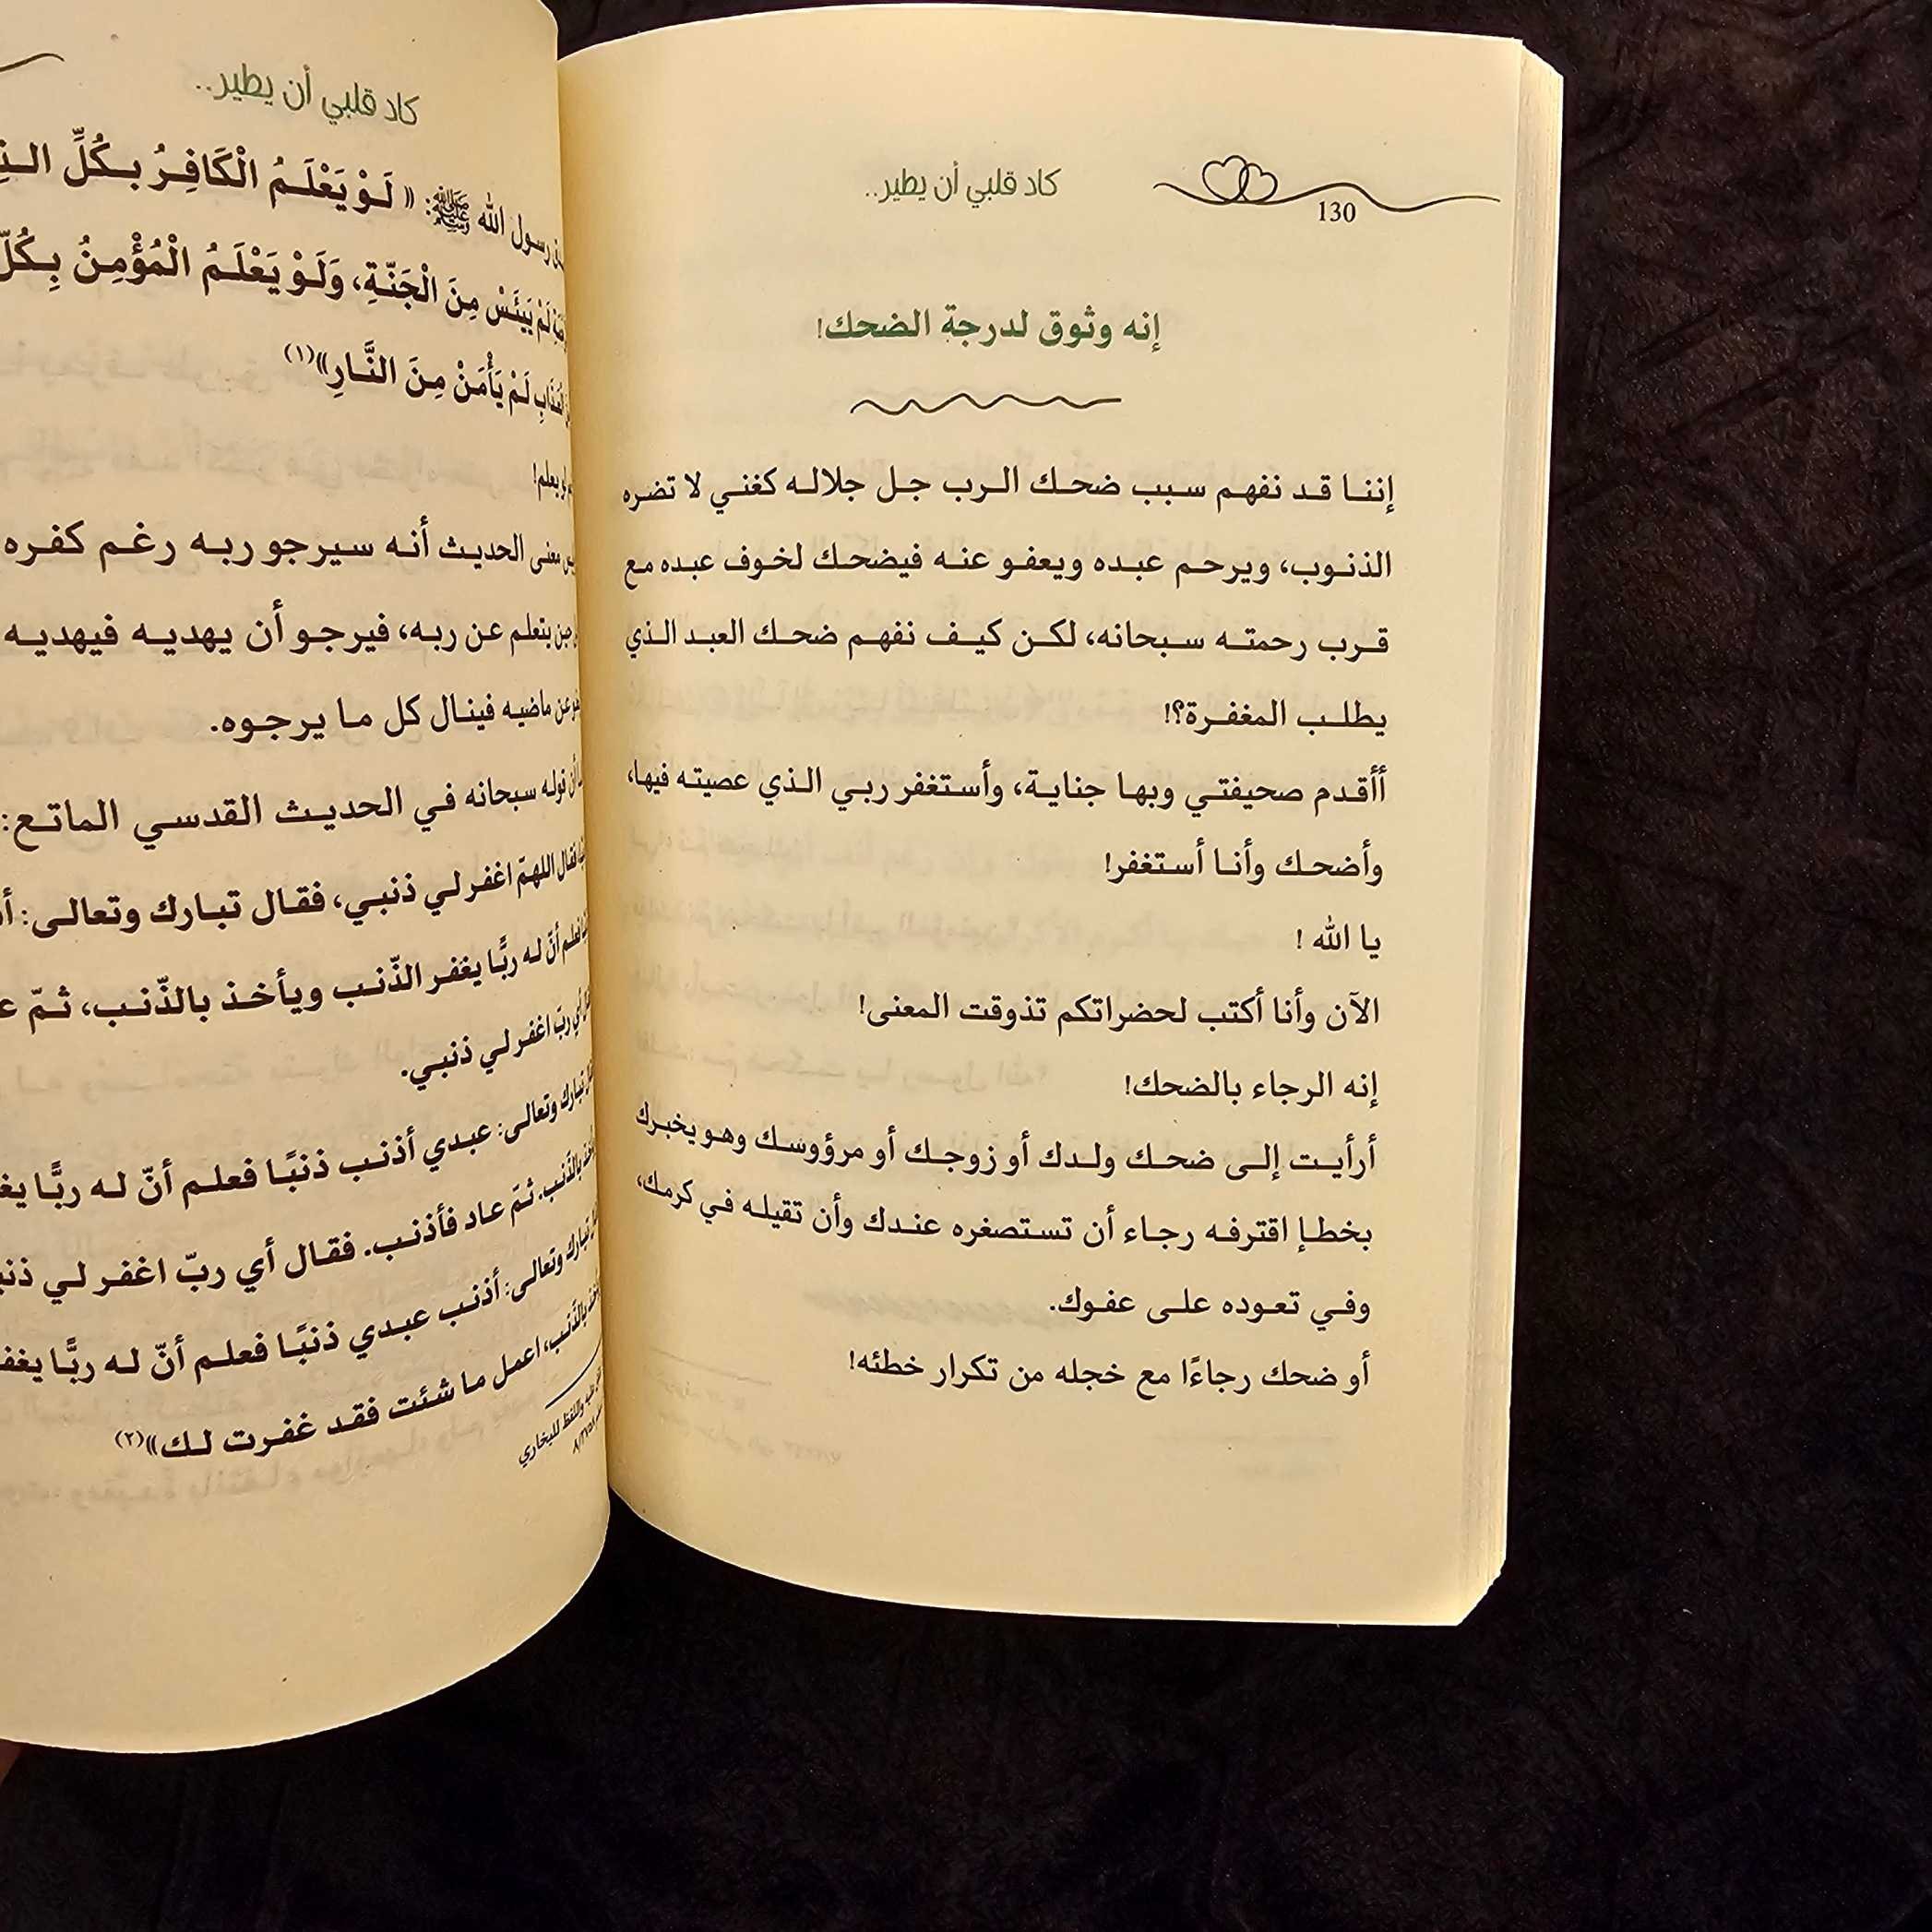 كاد قلبي أن يطير..
130
إنه وثوق لدرجة الضحك!
إننا قد نفهم سبب ضحك الرب جل جلاله كغني لا تضره
الذنوب، ويرحم عبده ويعفو عنه فيضحك لخوف عبده مع
قرب رحمته سبحانه، لكن كيف نفهم ضحك العبد الذي
يطلب المغفرة؟!
أأقدم صحيفتي وبها جناية، وأستغفر ربي الذي عصيته فيها،
وأضحك وأنا أستغفر!
يا الله !
الآن وأنا أكتب لحضراتكم تذوقت المعنى!
إنه الرجاء بالضحك!
أرأيت إلى ضحك ولدك أو زوجك أو مرؤوسك وهو يخبرك
بخطإ اقترفه رجاء أن تستصغره عندك وأن تقيله في كرمك،
وفي تعوده على عفوك.
أو ضحك رجاءًا مع خجله من تكرار خطئه!
كاد قلبي أن يطير..
رسول الله ﷺ: « لَوْ يَعْلَمُ الْكَافِرُ بِكُلِّ
لَمْ يَيْئَسْ مِنَ الْجَنَّةِ، وَلَوْ يَعْلَمُ الْمُؤْمِنُ بِكُلِّ
الْعَذَابِ لَمْ يَأْمَنْ مِنَ النَّارِ»(١)
يعلم!
معنى الحديث أنه سيرجو ربه رغم كفره
يتعلم عن ربه، فيرجو أن يهديه فيهديه
عن ماضيه فينال كل ما يرجوه.
قوله سبحانه في الحديث القدسي الماتع:
فقال اللهمّ اغفر لي ذنبي، فقال تبارك وتعالى:
فعلم أنّ له ربًّا يغفر الذّنب ويأخذ بالذّنب، ثمّ
أي ربّ اغفر لي ذنبي.
تبارك وتعالى: عبدي أذنب ذنبًا فعلم أنّ له ربًّا
بالذّنب. ثمّ عاد فأذنب. فقال أي ربّ اغفر لي
تبارك وتعالى: أذنب عبدي ذنبًا فعلم أنّ له ربًّا
بالذّنب، اعمل ما شئت فقد غفرت لك»(٢)
واللفظ للبخاري